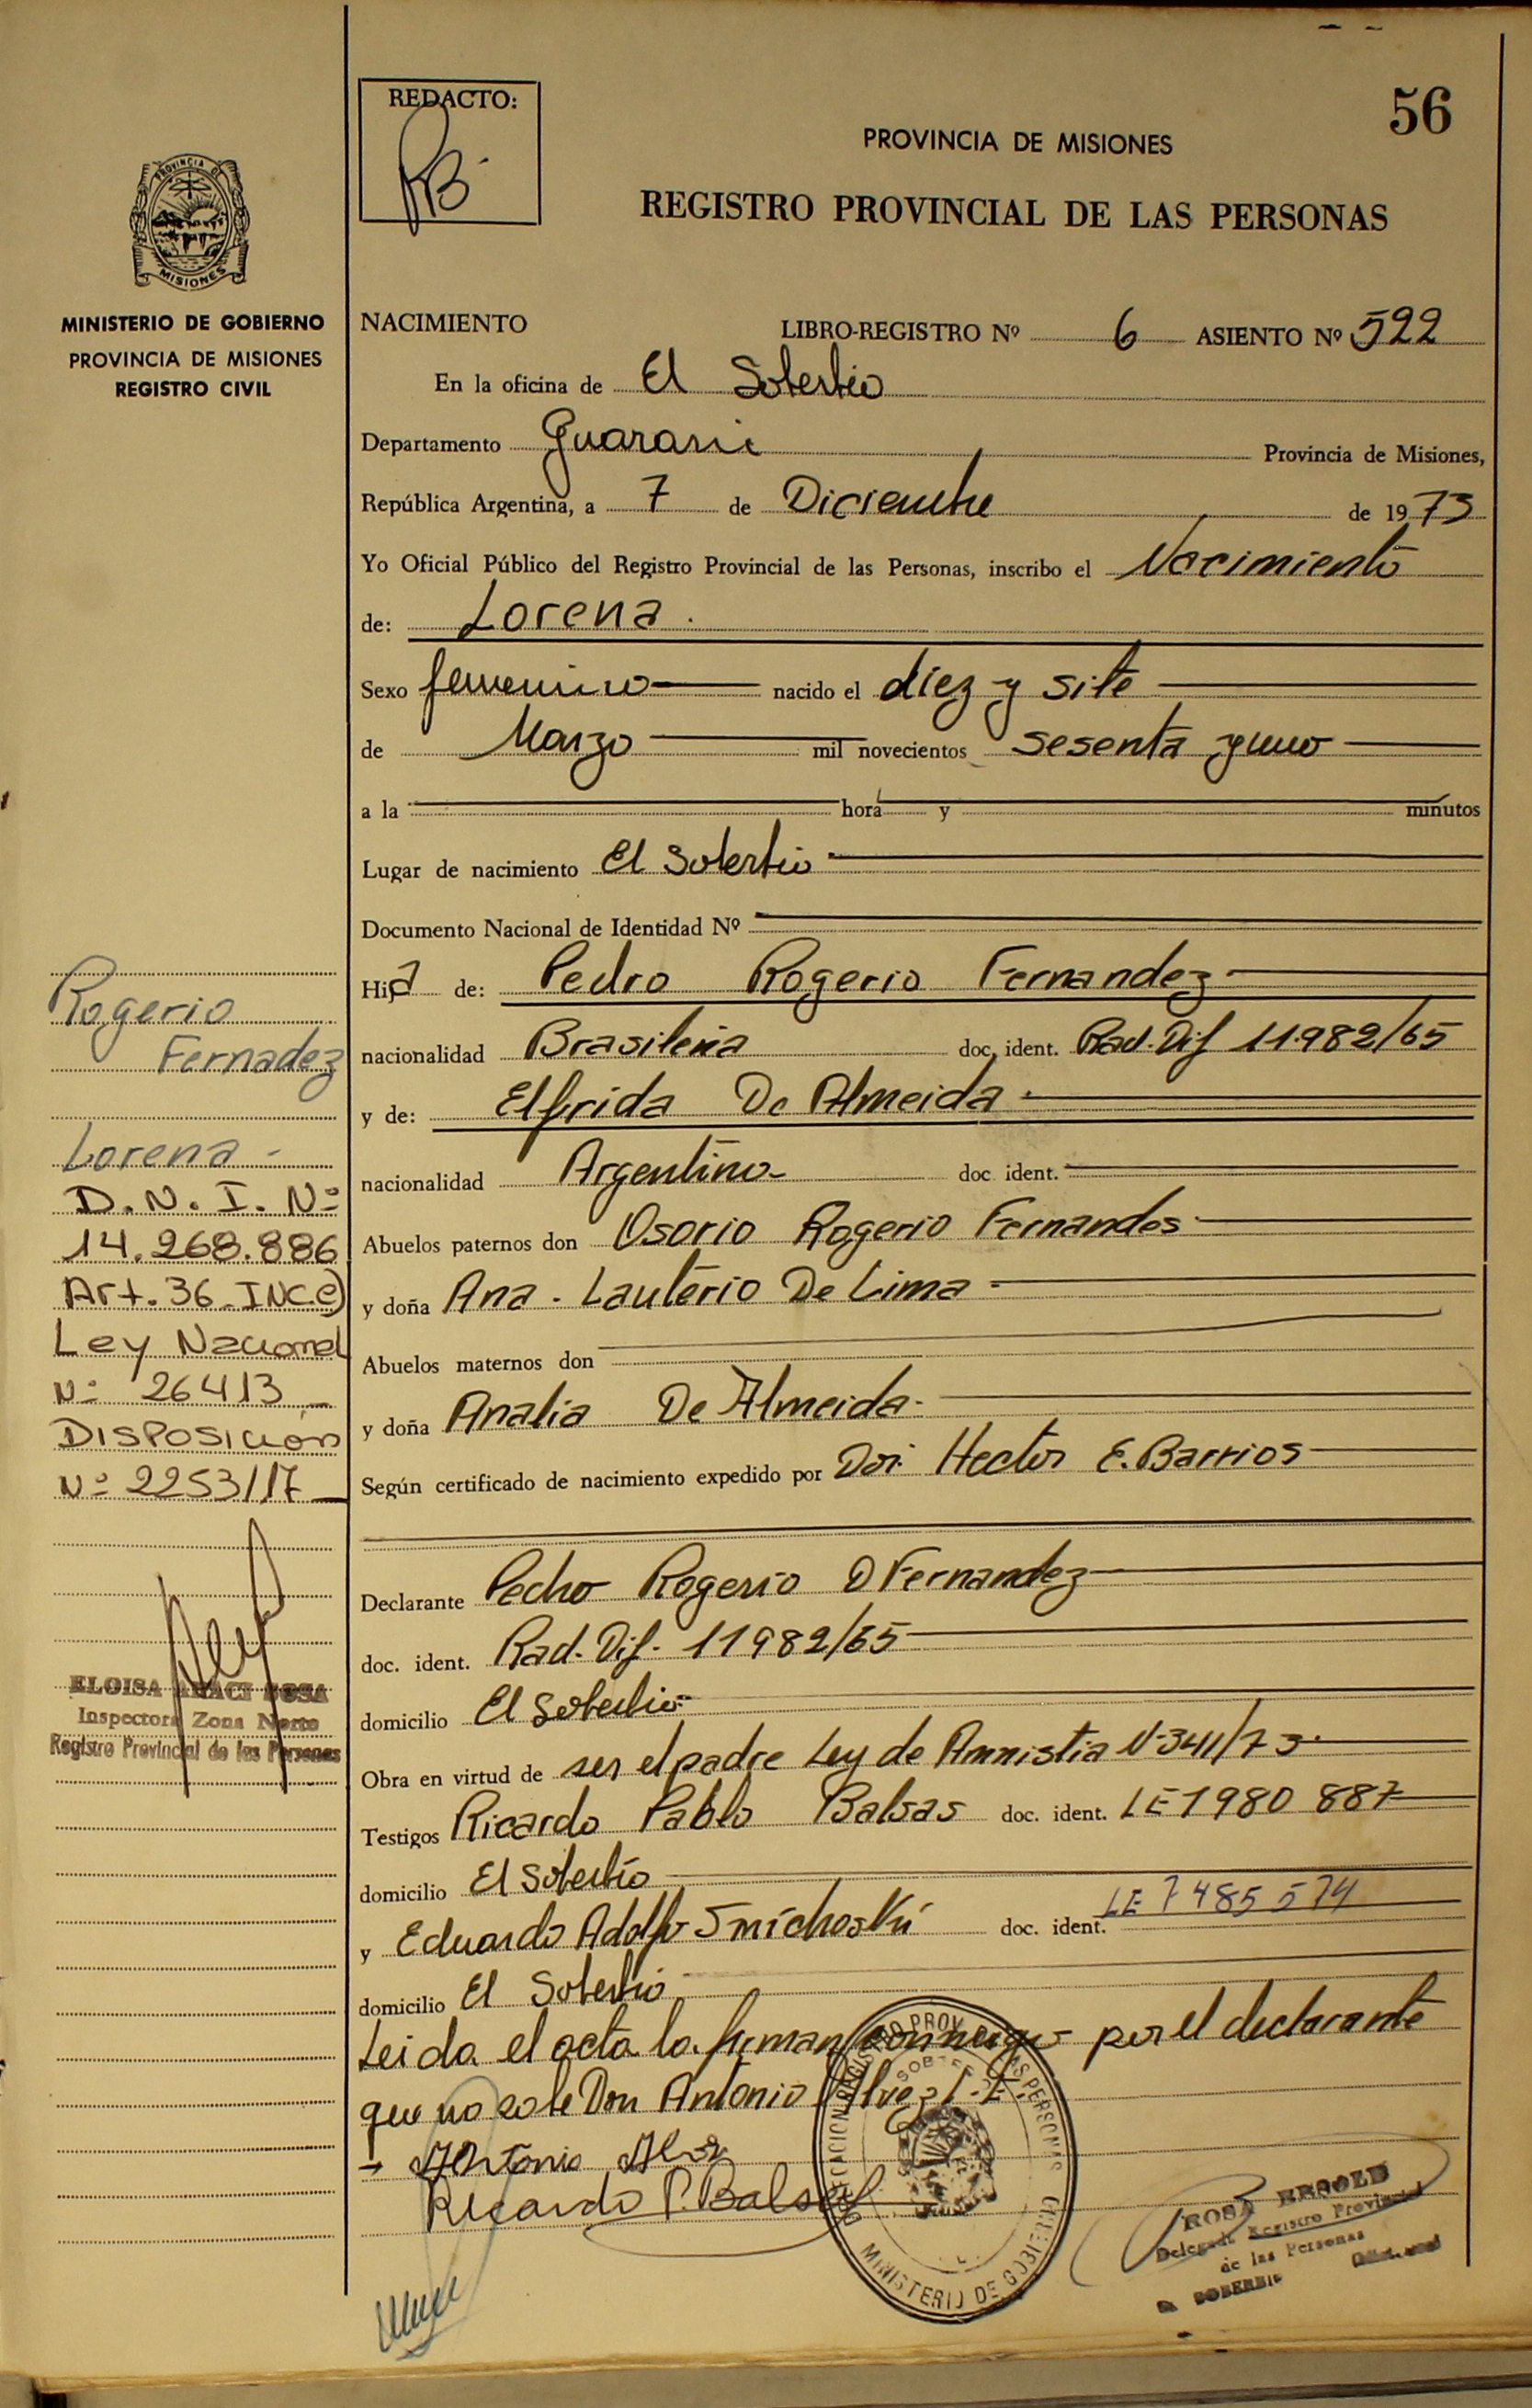 56
REDACTO:
PROVINCIA DE MISIONES
REGISTRO PROVINCIAL DE LAS PERSONAS
PROVINCIA DE
MISIONES
MINISTERIO DE GOBIERNO
PROVINCIA DE MISIONES
REGISTRO CIVIL
NACIMIENTO LIBRO-REGISTRO Nº 6 ASIENTO Nº 522
En la oficina de El Soberbio
Departamento Guarani Provincia de Misiones,
República Argentina, a 7 de Diciembre de 1973
Yo Oficial Público del Registro Provincial de las Personas, inscribo el Nacimiento
de: Lorena.
Sexo femenino nacido el diez y site
de Marzo mil novecientos sesenta y uno
a la hora y minutos
Lugar de nacimiento El Soberbio
Documento Nacional de Identidad Nº
Hija de: Pedro Rogerio Fernandez
nacionalidad Brasileña doc. ident. Rad. Dif 11.982/65
y de: Elfrida De Almeida
nacionalidad Argentina doc. ident.
Abuelos paternos don Osorio Rogerio Fernandes
y doña Ana - Lauterio De Lima
Abuelos maternos don
y doña Analia De Almeida.
Según certificado de nacimiento expedido por Don Hector E. Barrios
Declarante Pedro Rogerio D Fernandez
doc. ident. Rad. Dif. 11982/65
domicilio El Soberbio
Obra en virtud de ser el padre Ley de Amnistia Nº 341/73.
Testigos Ricardo Pablo Balsas doc. ident. LE 1980 887
domicilio El Soberbio
y Eduardo Adolfo Smichoski doc. ident. LE 7485574
domicilio El Soberbio
Leida el acta la firman conmigo por el declarante
que no sabe Don Antonio Alvez L.E.
Antonio Alvez
Ricardo P. Balsas
Rogerio
Fernadez
Lorena -
D.N.I. Nº
14.268.886
Art. 36 - INC. e)
Ley Nacional
Nº 26413
DISPOSICION
Nº 2253/17
ELOISA ARACI SOSA
Inspectora Zona Norte
Registro Provincial de las Personas
MINISTERIO DE GOBIERNO
ROSA
Delegada Registro Provincial
de las Personas
EL SOBERBIO